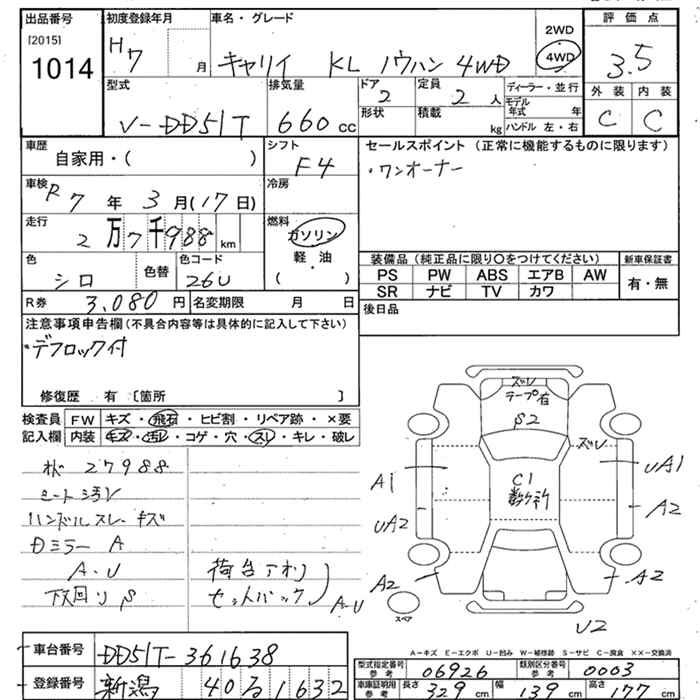 出品番号
[2015]
1014
初度登録年月
H7 月
車名・グレード
キャリイ KL ノウハン 4WD
2WD
4WD
評価点
3.5
外装 内装
C C
型式
V-DD51T
排気量
660 cc
ドア
2
形状
定員
2 人
積載
kg
ディーラー・並行
モデル年式 年
ハンドル 左・右
車歴
自家用・( )
シフト
F4
車検
R7年 3月(17日)
冷房
走行
2万7千988km
燃料
ガソリン
軽・油
( )
色
シロ
色替
色コード
26U
R券 3,080円
名変期限 月 日
セールスポイント(正常に機能するものに限ります)
・ワンオーナー
装備品(純正品に限り〇をつけてください)
新車保証書
PS PW ABS エアB AW
SR ナビ TV カワ
有・無
後日品
注意事項申告欄(不具合内容等は具体的に記入して下さい)
・デフロック付
修復歴 有 〔箇所 〕
検査員記入欄
FW キズ・飛石・ヒビ割・リペア跡・×要
内装 キズ・汚レ・コゲ・穴・スレ・キレ・破レ
27988
シート汚レ
ハンドルスレ キズ
Dミラー A
A・U
下回り S
荷台アオリ
セットバック
A・U
ズレ
テープ有
S2
ズレ
C1
数ケ所
A1
UA2
A2
UA1
A2
A2
U2
スペア
A-キズ E-エクボ U-凹み W-補修跡 S-サビ C-腐食 XX-交換済
車台番号
DD51T-361638
登録番号
新潟 40 る 1632
型式指定番号 参考
06926
類別区分番号 参考
0003
車庫証明用 参考
長さ 329 cm
幅 139 cm
高さ 177 cm